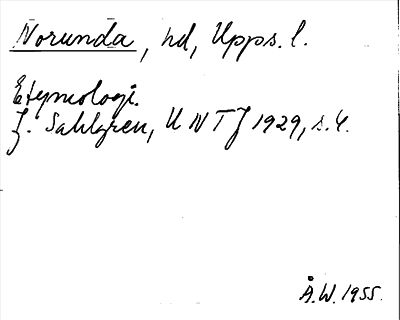 Norunda, hd, Upps. l.
Etymologi.
J. Sahlgren, UNTJ 1929, s. 4.
Å.W. 1955.